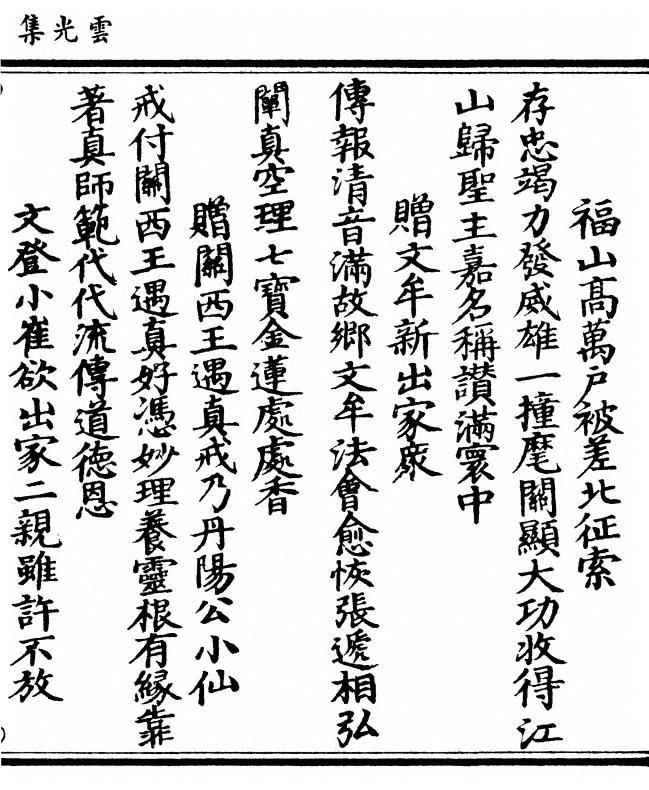 雲光集
福山高萬户被差北征索
存忠竭力發威雄一撞麾關顯大功收得江
山歸聖主嘉名稱讚滿寰中
贈文牟新出家衆
傳報清音滿故鄉文牟法會愈恢張遞相弘
闡真空理七寶金蓮處處香
贈關西王遇真戒乃丹陽公小仙
戒付關西王遇真好憑妙理養靈根有緣靠
著真師範代代流傳道德恩
文登小崔欲出家二親雖許不放